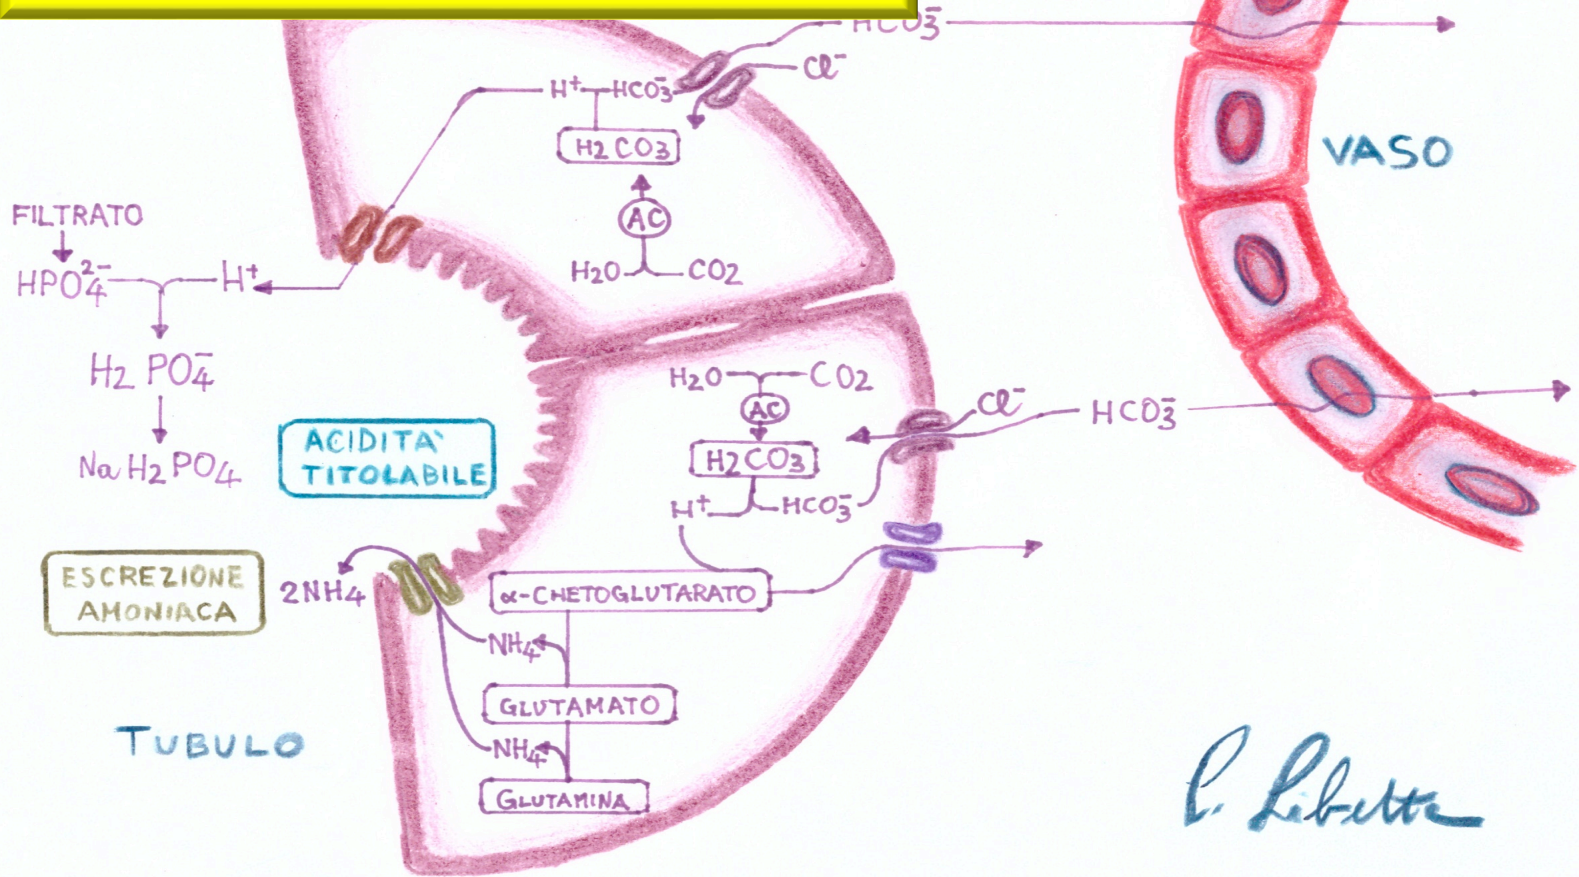 HCO3-
Cl-
H+ HCO3-
H2CO3
AC
H2O CO2
VASO
FILTRATO
HPO4 2- H+
H2PO4-
NaH2PO4
ACIDITA'
TITOLABILE
H2O CO2
AC
H2CO3
H+ HCO3-
Cl-
HCO3-
ESCREZIONE
AMONIACA
2NH4
α-CHETOGLUTARATO
NH4
GLUTAMATO
NH4
GLUTAMINA
TUBULO
C. Libetta